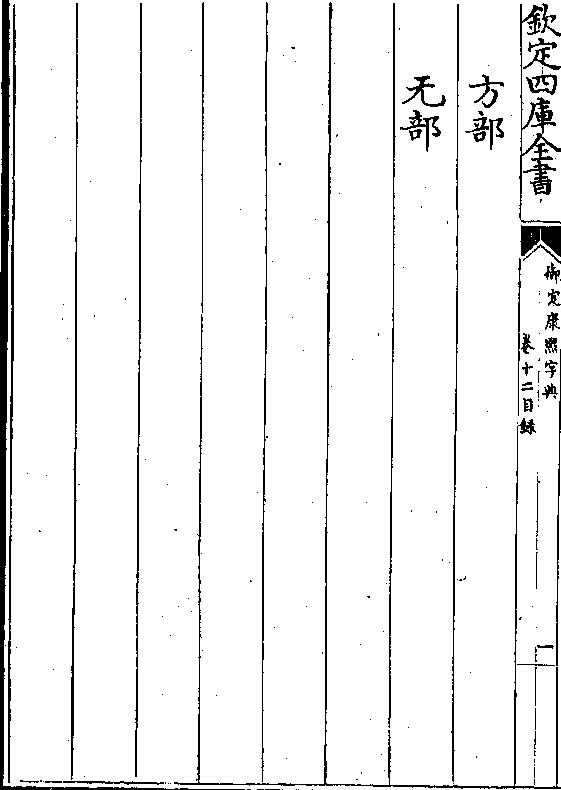 欽定四庫全書
御定康熙字典
卷十二目錄
一
方部
无部